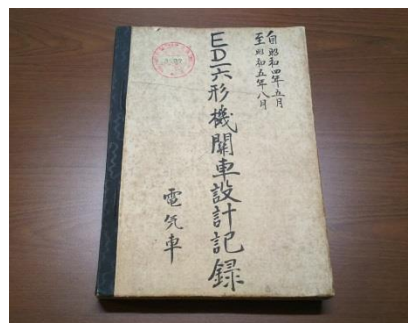 自昭和四年五月
至昭和五年八月
ED一六形機關車設計記録
電気車